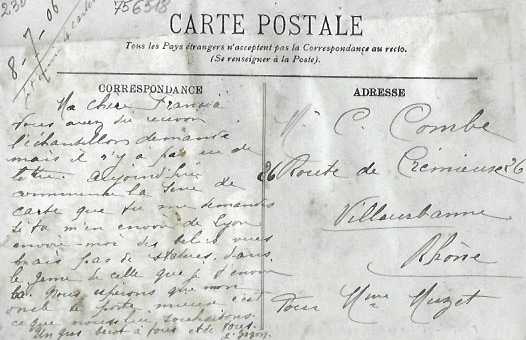 230
756518
8-7-06
CARTE POSTALE
Tous les Pays étrangers n'acceptent pas la Correspondance au recto.
(Se renseigner à la Poste).
CORRESPONDANCE
Ma chere
vous avez du recevoir
l'échantillon demandé
mais il n'y a pas eu de
aujourd'hui
la Serie de
carte que tu me demandes
si tu m'en envoie de Lyon
envoie moi des belles vues
mais pas de statues, dans
le genre de celle que j'envoie
Nous espérons que mon
oncle se porte mieux c'est
ce que nous souhaitons.
Un gros à tous et de tous.
ADRESSE
C. Combe
26 Route de Crémieux 26
Villeurbanne
Rhône
Pour Mme Muzet